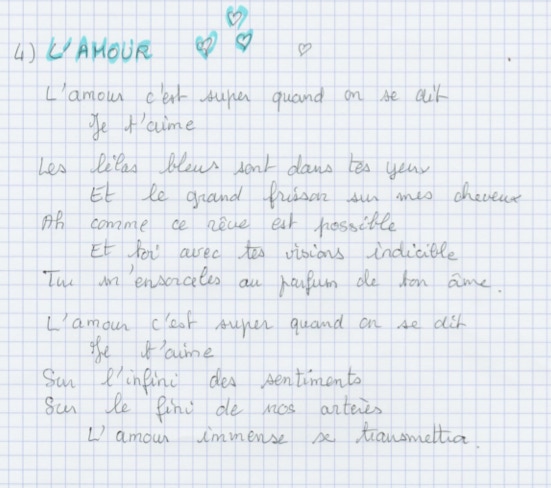 4) L'AMOUR
L'amour c'est super quand on se dit
Je t'aime
Les lilas bleus sont dans tes yeux
Et le grand frisson sur mes cheveux
Ah comme ce rêve est possible
Et toi avec tes visions indicible
Tu m'ensorceles au parfum de ton âme.
L'amour c'est super quand on se dit
Je t'aime
Sur l'infini des sentiments
Sur le fini de nos artères
L'amour immense se transmettra.